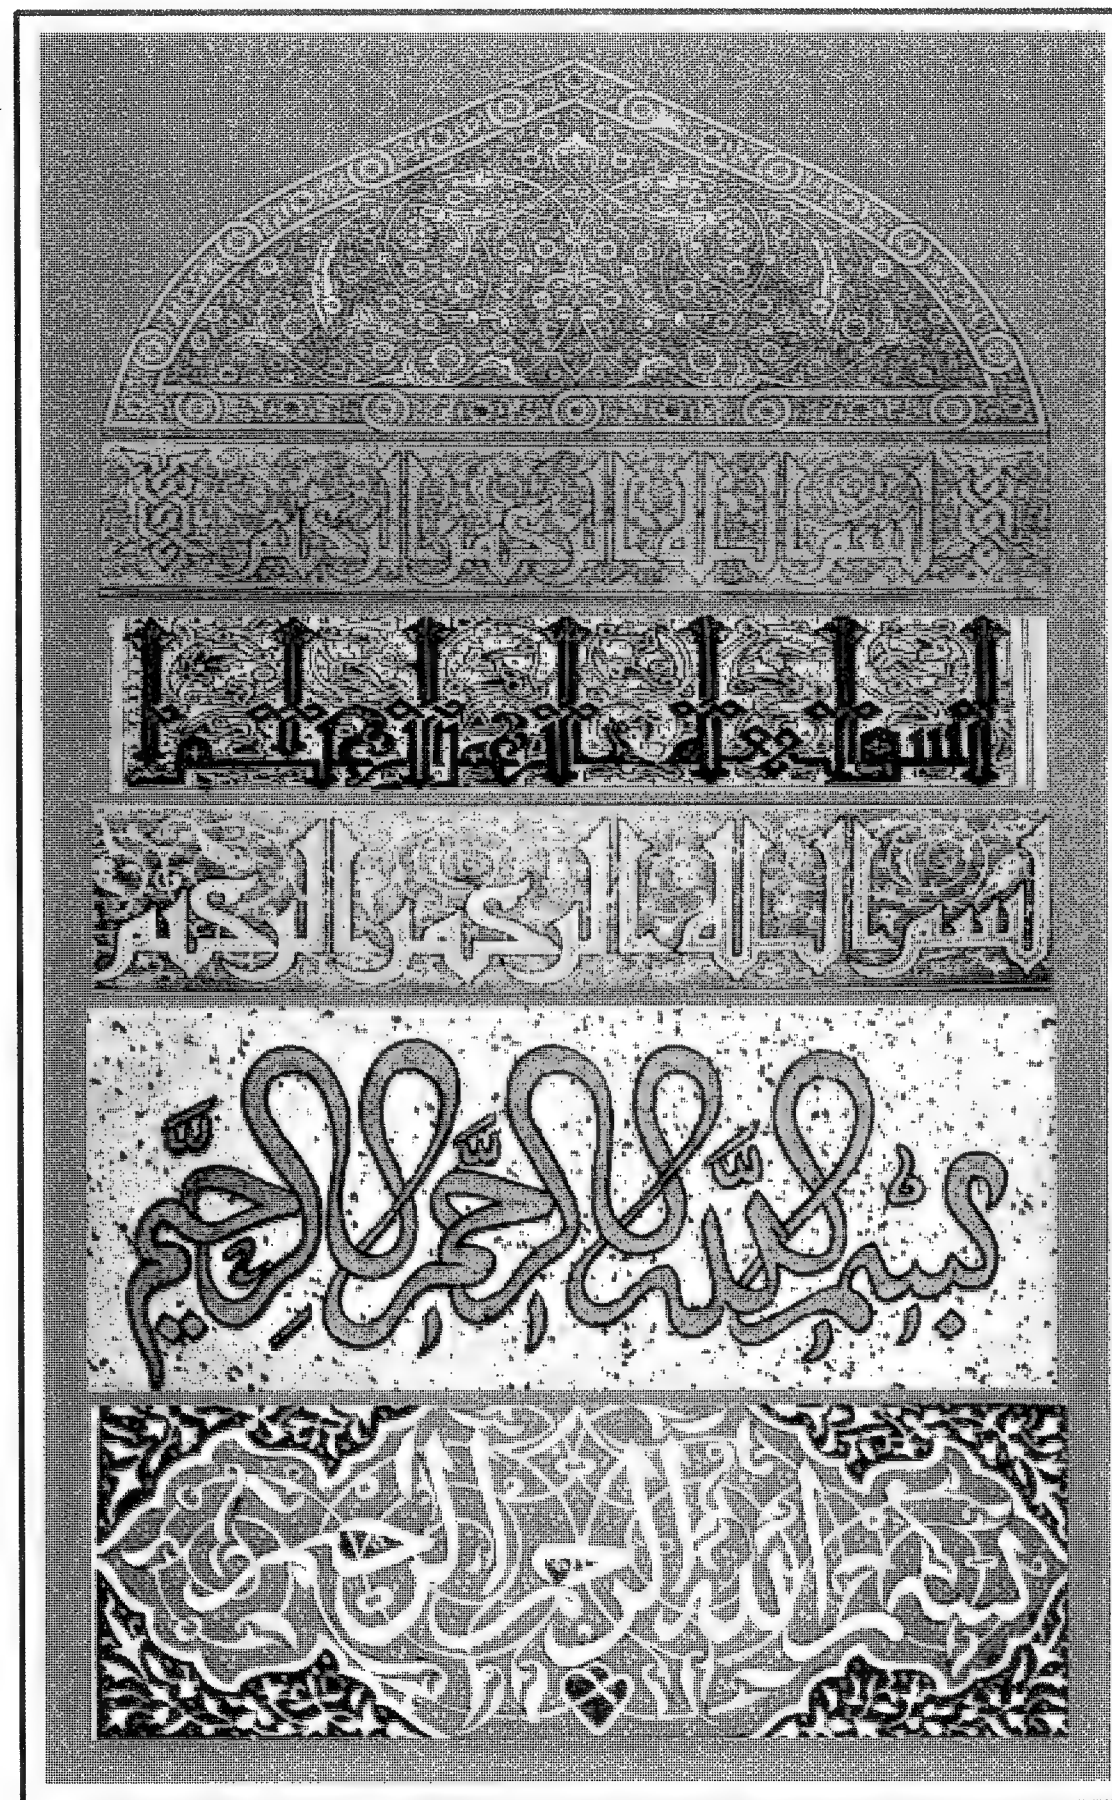 بسم الله الرحمن الرحيم
بسم الله الرحمن الرحيم
بِسْمِ اللَّهِ الرَّحْمَنِ الرَّحِيمِ
بسم الله الرحمن الرحيم